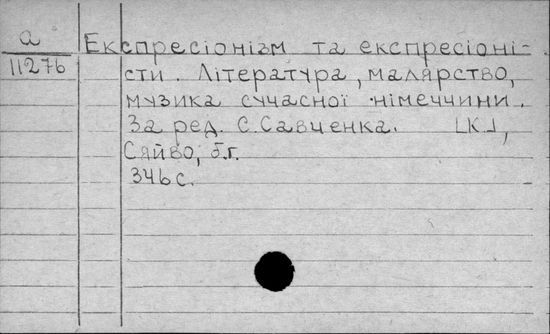 а
11276
Експресіонізм та експресіоні-
сти. Література, малярство,
музика сучасної німеччини.
За ред. С. Савченка. [К],
Сяйво, б.г.
346 с.